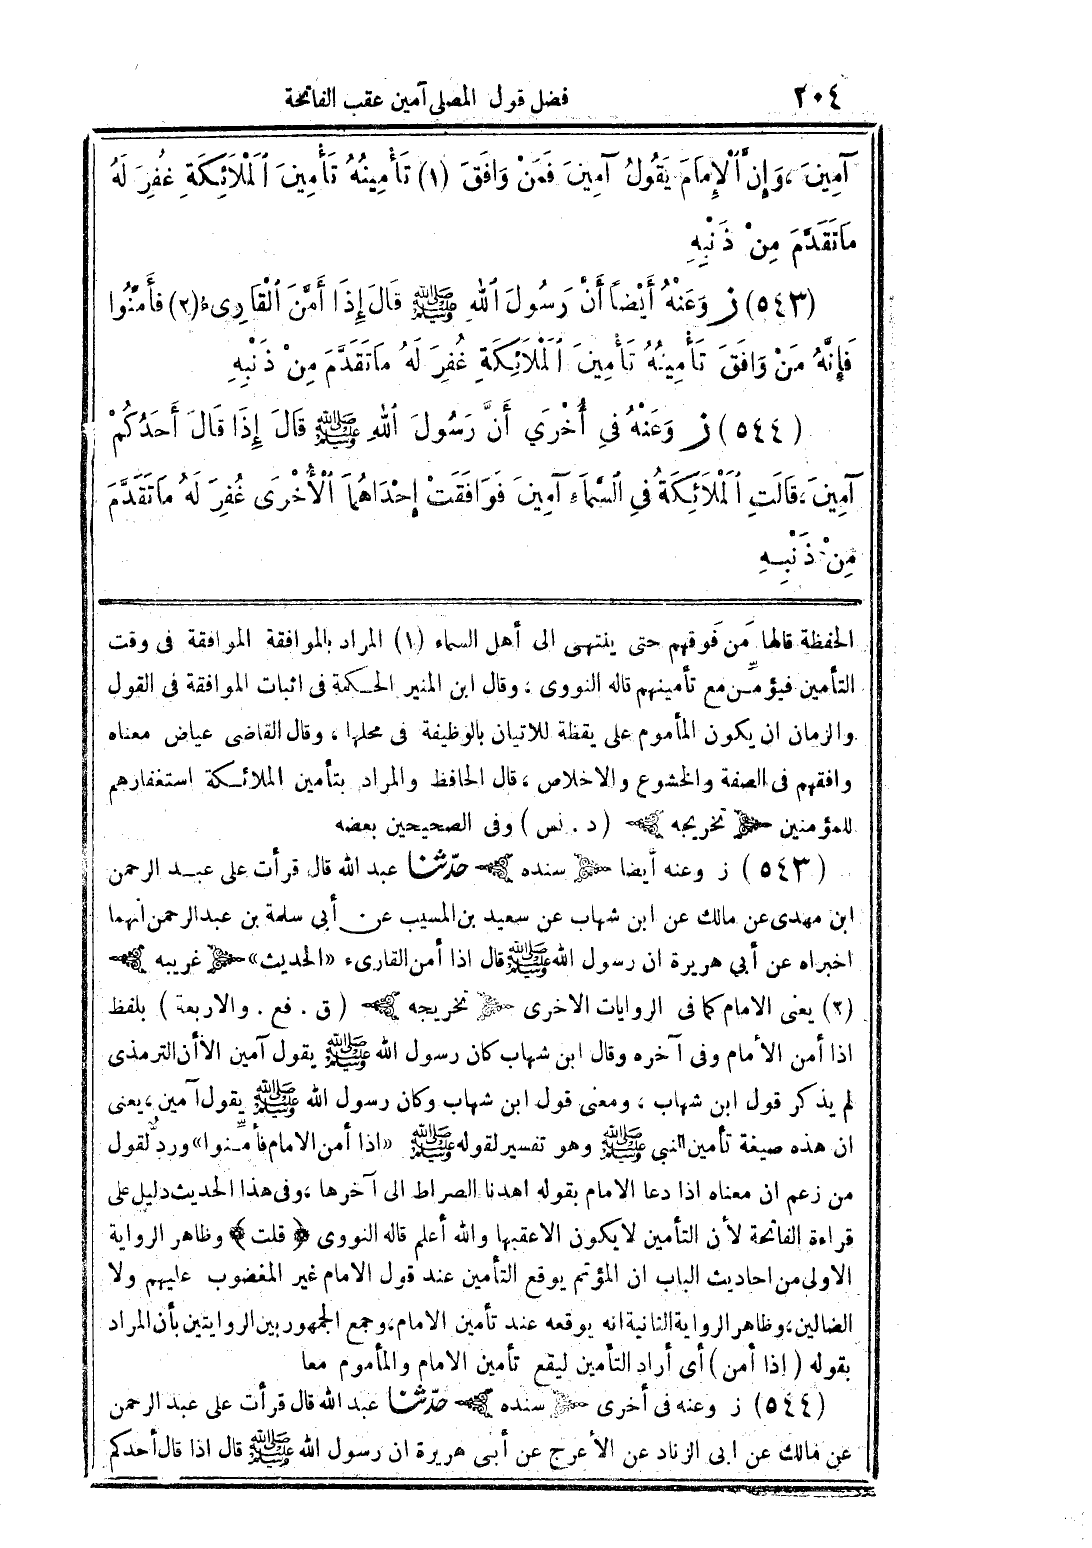 ٢٠٤ فضل قول المصلى آمين عقب الفاتحة
آمِينَ، وَإِنَّ الْإِمَامَ يَقُولُ آمِينَ فَمَنْ وَافَقَ (١) تَأْمِينُهُ تَأْمِينَ الْمَلَائِكَةِ غُفِرَ لَهُ
مَا تَقَدَّمَ مِنْ ذَنْبِهِ
(٥٤٣) ز وَعَنْهُ أَيْضاً أَنَّ رَسُولَ اللهِ ﷺ قَالَ إِذَا أَمَّنَ الْقَارِىءُ (٢) فَأَمِّنُوا
فَإِنَّهُ مَنْ وَافَقَ تَأْمِينُهُ تَأْمِينَ الْمَلَائِكَةِ غُفِرَ لَهُ مَا تَقَدَّمَ مِنْ ذَنْبِهِ
(٥٤٤) ز وَعَنْهُ فِي أُخْرَي أَنَّ رَسُولَ اللهِ ﷺ قَالَ إِذَا قَالَ أَحَدُكُمْ
آمِينَ، قَالَتِ الْمَلَائِكَةُ فِي السَّمَاءِ آمِينَ فَوَافَقَتْ إِحْدَاهُمَا الْأُخْرَى غُفِرَ لَهُ مَا تَقَدَّمَ
مِنْ ذَنْبِهِ
الحفظة قالها من فوقهم حتى ينتهى الى أهل السماء (١) المراد بالموافقة الموافقة فى وقت
التأمين فيؤمِّن مع تأمينهم قاله النووى، وقال ابن المنير الحكمة فى اثبات الموافقة فى القول
والزمان ان يكون المأموم على يقظة للاتيان بالوظيفة فى محلها، وقال القاضى عياض معناه
وافقهم فى الصفة والخشوع والاخلاص، قال الحافظ والمراد بتأمين الملائكة استغفارهم
للمؤمنين ﴿تخريجه﴾ (د. نس) وفى الصحيحين بعضه
(٥٤٣) ز وعنه أيضا ﴿سنده﴾ حدّثنا عبد الله قال قرأت على عبد الرحمن
ابن مهدى عن مالك عن ابن شهاب عن سعيد بن المسيب عن أبي سلمة بن عبد الرحمن انهما
اخبراه عن أبي هريرة ان رسول الله ﷺ قال اذا أمن القارىء «الحديث» ﴿غريبه﴾
(٢) يعنى الامام كما فى الروايات الاخرى ﴿تخريجه﴾ (ق. فع. والاربعة) بلفظ
اذا أمن الأمام وفى آخره وقال ابن شهاب كان رسول الله ﷺ يقول آمين الا أن الترمذى
لم يذكر قول ابن شهاب، ومعنى قول ابن شهاب وكان رسول الله ﷺ يقول آمين، يعنى
ان هذه صيغة تأمين النبي ﷺ وهو تفسير لقوله ﷺ «اذا أمن الامام فأمِّنوا» وردٌ لقول
من زعم ان معناه اذا دعا الامام بقوله اهدنا الصراط الى آخرها، وفى هذا الحديث دليل على
قراءة الفاتحة لأن التأمين لا يكون الا عقبها والله أعلم قاله النووى ﴿قلت﴾ وظاهر الرواية
الاولى من احاديث الباب ان المؤتم يوقع التأمين عند قول الامام غير المغضوب عليهم ولا
الضالين، وظاهر الرواية الثانية انه يوقعه عند تأمين الامام، وجمع الجمهور بين الروايتين بأن المراد
بقوله (إذا أمن) أى أراد التأمين ليقع تأمين الامام والمأموم معا
(٥٤٤) ز وعنه فى أخرى ﴿سنده﴾ حدّثنا عبد الله قال قرأت على عبد الرحمن
عن مالك عن ابى الزناد عن الأعرج عن أبى هريرة ان رسول الله ﷺ قال اذا قال أحدكم